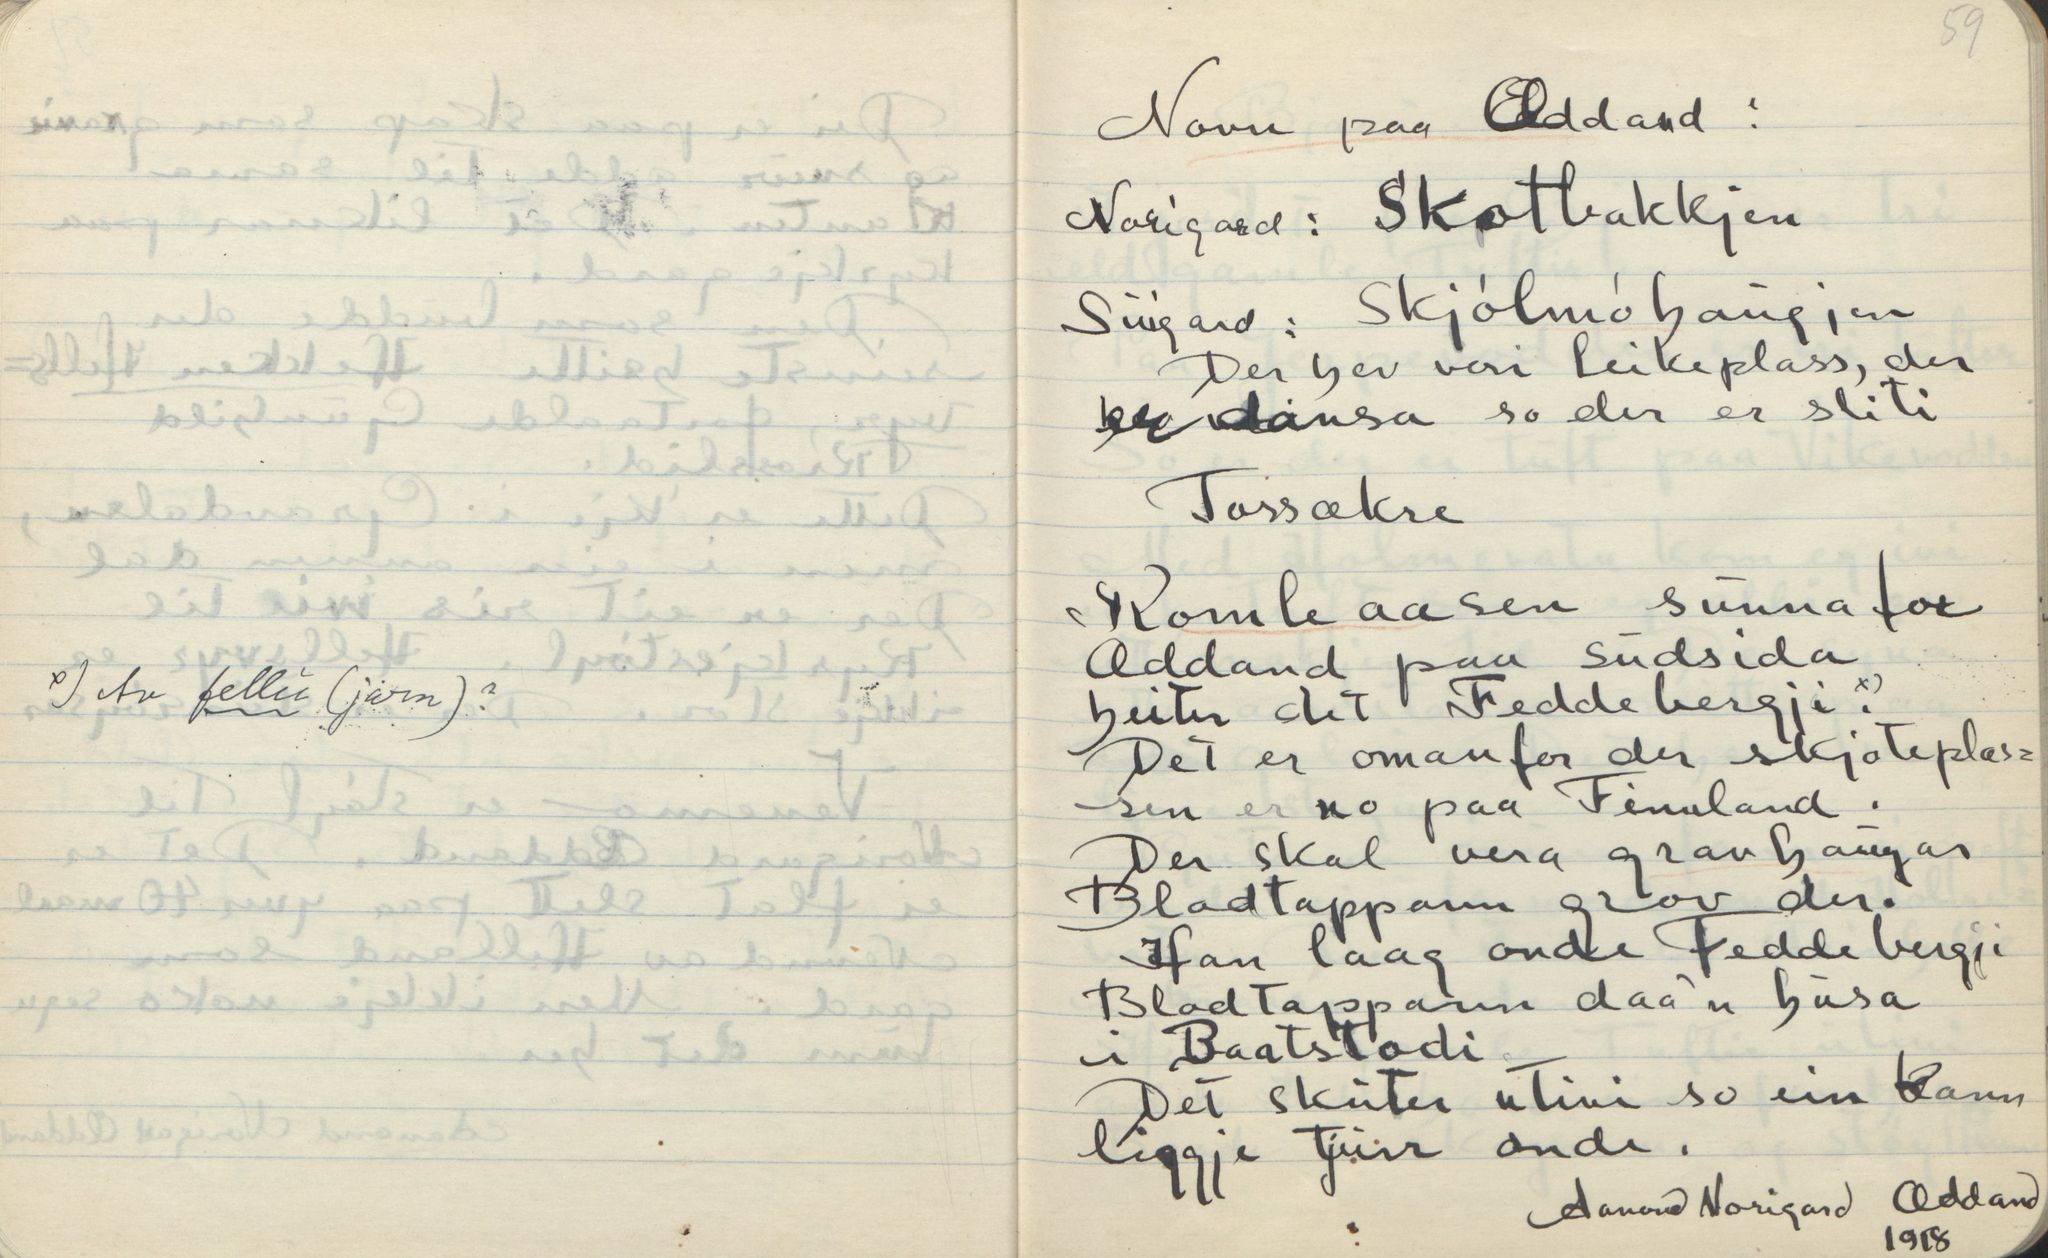 x) Av fellü (jarn)?
59
Novn paa Oddand:
Norigard: Skotbakkjen
Sügard: Skjólmóhaugjen
Der hev vori leikeplass, der
dansa so der er sliti
Tossækre
Romleaasen sunnafor
Oddand paa südsida
heiter det Feddebergji x)
Det er omanfor der skjoteplas=
sen er no paa Finnland.
Der skal vera gravhaugar
Blodtappann grov der.
Han laag onde Feddebergji
Blodtappann daa'n husa
i Baatstodi
Det skúter utivi so ein kann
liggje tjürr onde.
Aanond Norigard Oddand
1918